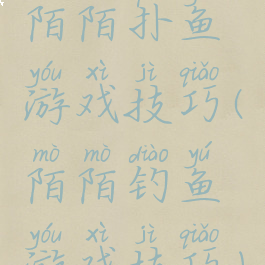 陌陌扑鱼
yóu xì jì qiǎo
游戏技巧(
mò mò diào yú
陌陌钓鱼
yóu xì jì qiǎo
游戏技巧)